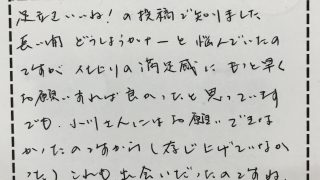 足をさいいね!の投稿で知りました
長い間 どうしようかナーと悩んでいたの
ですが 仕上りの満足感に もっと早く
お願いすれば良かったと思っています
でも、小川さんにはお願いできな
かったのですから(存じ上げていなか
った)これも出会いだったのですね